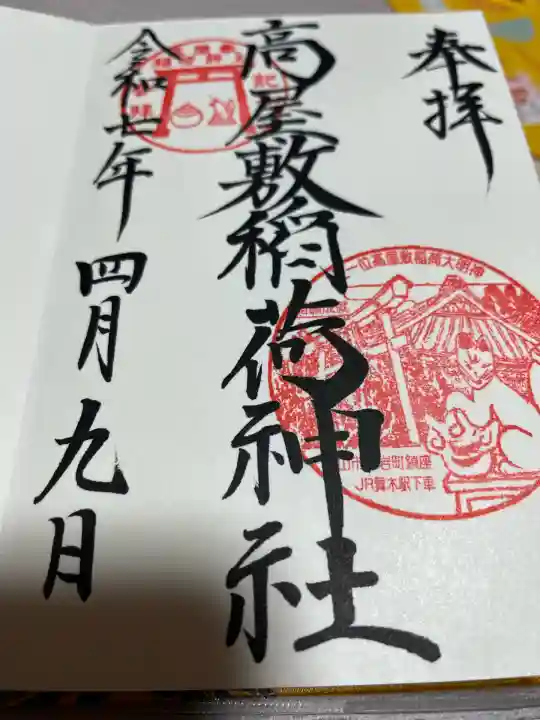 奉拝
高屋敷稲荷神社
令和七年 四月九日
一位高屋敷稲荷大明神
岩町鎮座
JR舞木駅下車